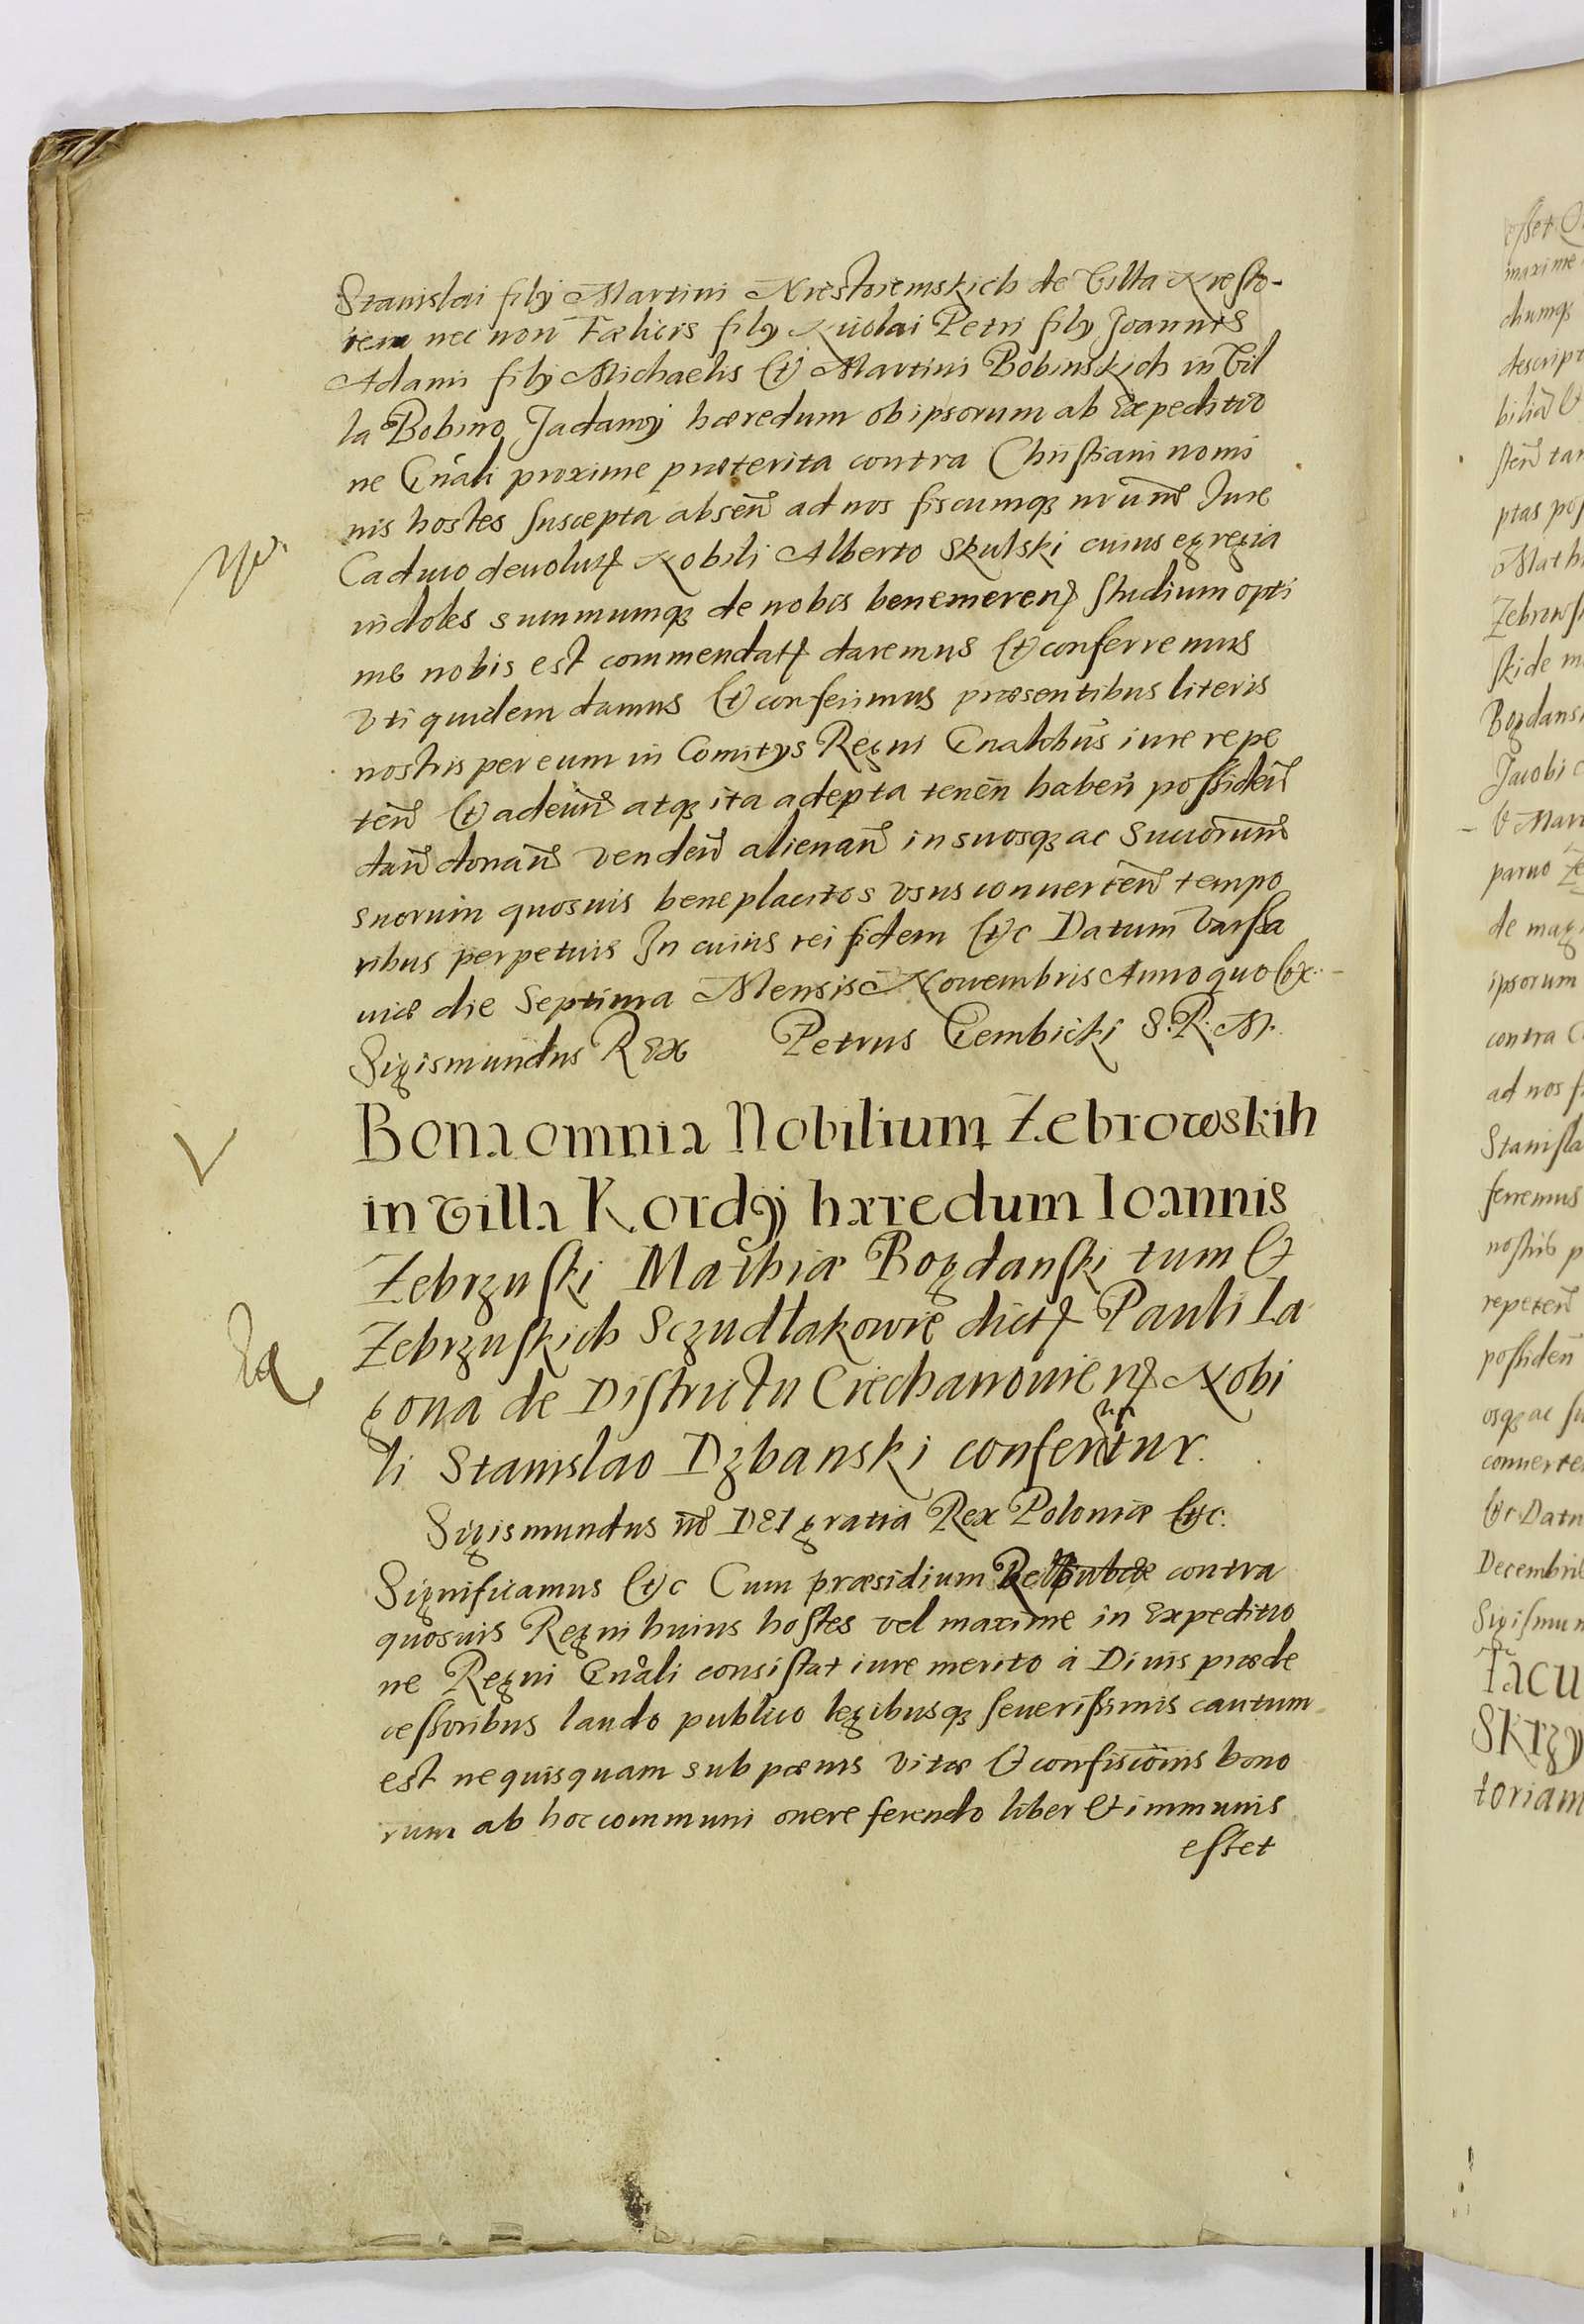 Stanislai filÿ Martini Niestoiemskich de Villa Niesto-
iem nec non Fœlicis filÿ Nicolai Petri filÿ Joannis
Adami filÿ Michaelis et Martini Bobinskich in Vil
la Bobino Jadamÿ hæredum ob ipsorum ab Expeditio
ne Gnali proxime præterita contra Christiani nomi
nis hostes suscepta absen ad nos fiscumq3 nrum Jure
Caduco deuolut Nobili Alberto Skulski cuius egregia
indoles summumq3 de nobis benemeren studium opti
me nobis est commendat daremus et conferremus
Vti quidem damus et conferimus præsentibus literis
nostris per eum in Comitÿs Regni Gnalibus iure repe
ten et adeun atq3 ita adepta tenen haben possiden
dan donan venden alienan in suosq3 ac Succorum
suorum quosuis beneplacitos vsus conuerten tempo
ribus perpetuis In cuius rei fidem etc Datum Varsa
uiæ die Septima Mensis Nouembris Anno quo Ex:
Sigismundus Rex Petrus Gembicki S: R: M:
Bona omnia Nobilium Zebrowskih
in Villa Kordÿ hæredum Ioannis
Zebrzuski Mathiæ Bogdanski tum et
Zebrzuskich Sczudlakowie dict Pauli Za
gona de Districtu Ciechanouien Nobi
li Stanislao Dzbanski conferuntur.
Sigismundus 3us DEI gratia Rex Poloniæ etc.
Significamus etc Cum præsidium Reipublicæ contra
quosuis Regni huius hostes vel maxime in Expeditio
ne Regni Gnali consistat iure merito à Diuis præde
cessoribus laudo publico legibusq3 seuerissimis cautum
est ne quisquam sub pœnis vitæ et confiscionis bono
rum ab hoc communi onere ferendo liber et immunis
esset